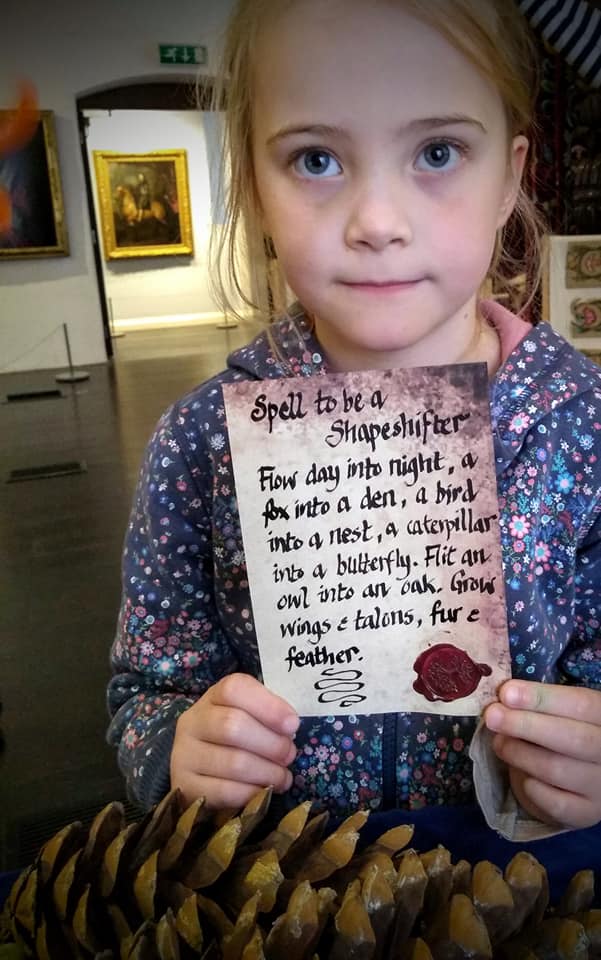 Spell to be a
Shapeshifter
Flow day into night, a
fox into a den, a bird
into a nest, a caterpillar
into a butterfly. Flit an
owl into an oak. Grow
wings & talons, fur &
feather.